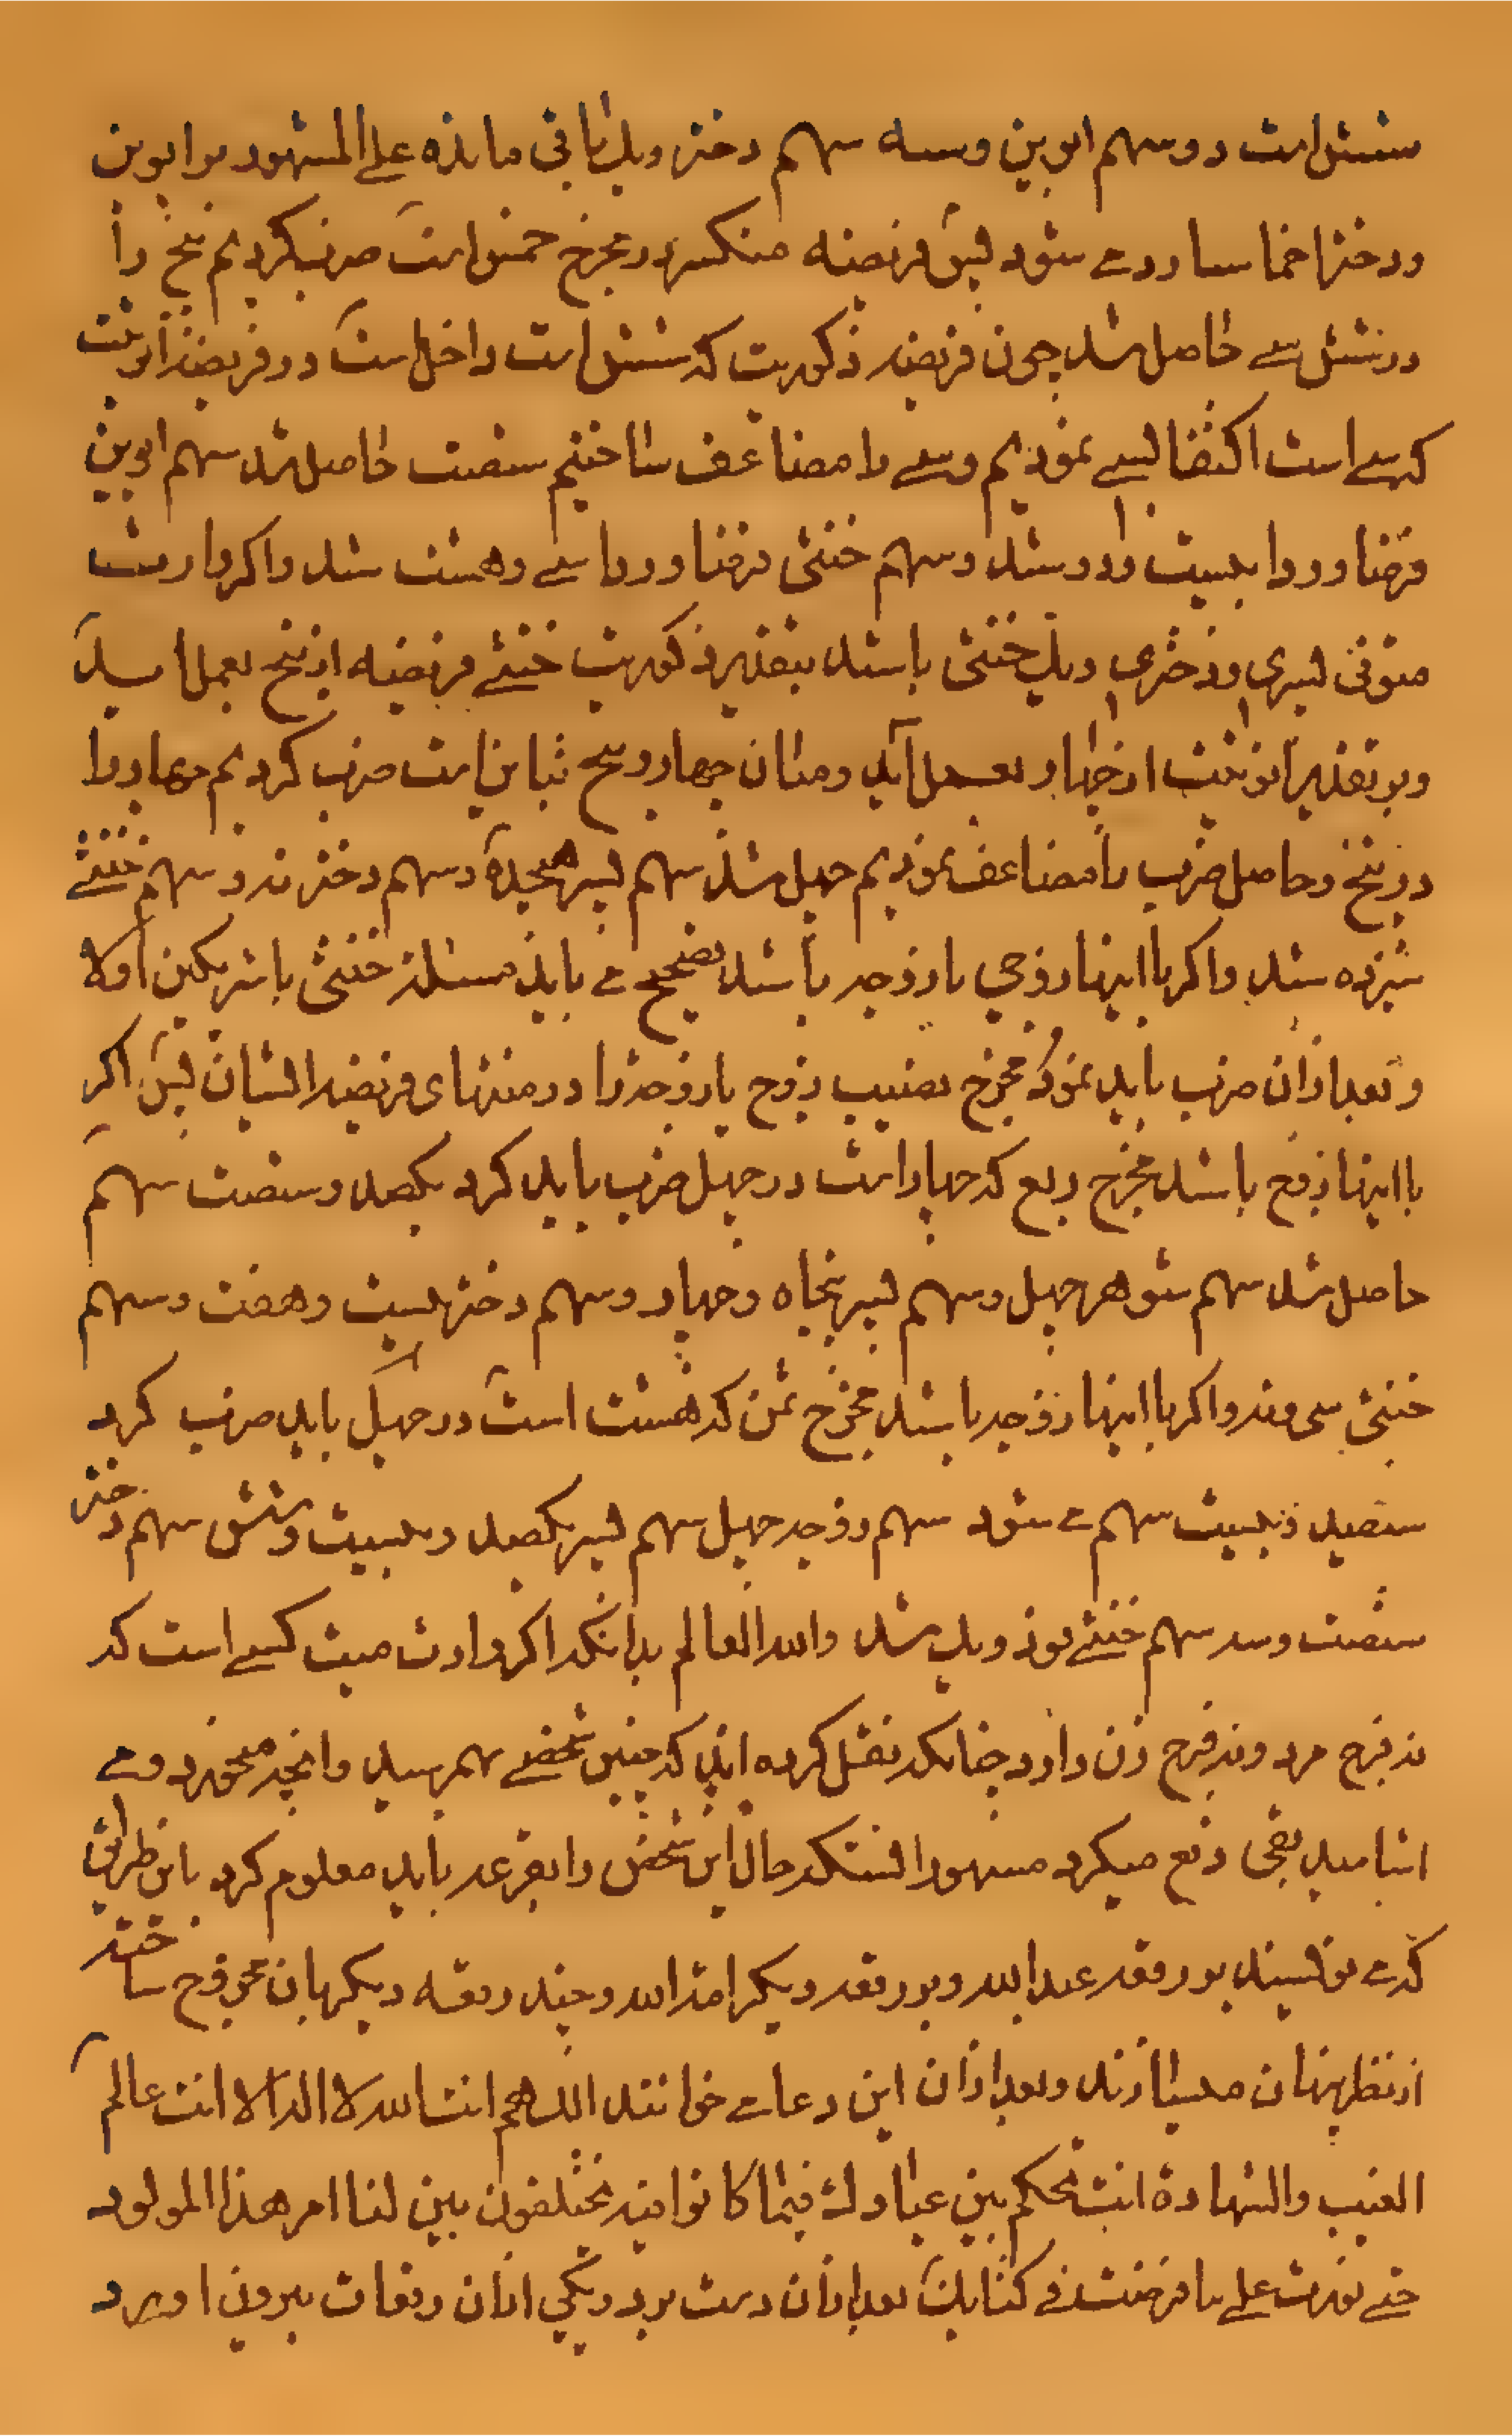 شش است دو سهم ابوین و سه سهم دختر و یک باقی مانده علی المشهور بر ابوین
و دختر اخماسا رد می شود پس فریضه منکسر در مخرج خمس است ضرب کردیم پنج را
در شش سی حاصل شد چون فریضه ذکوریت که شش است داخل است در فریضه انوثیت
که سی است اکتفا بسی نمودیم و سی را مضاعف ساختیم شصت حاصل شد سهم ابوین
فرضا و ردا بیست و دو شد و سهم خنثی فرضا و ردا سی و هشت شد و اگر وارث
متوفی پسری و دختری و یک خنثی باشد بتقدیر ذکوریت خنثی فریضه از پنج بعمل اید
و بر تقدیر انوثیت از چهار بعمل آید و میان چهار و پنج تباین است ضرب کردیم چهار را
در پنج و حاصل ضرب را مضاعف نمودیم چهل شد سهم پسر هیجده و سهم دختر نه و سهم خنثی
سیزده شد و اگر با اینها زوجی یا زوجه باشد تصحیح می باید مسئله خنثی با شریکین اولا
و بعد از ان ضرب باید نمود مخرج نصیب زوج یا زوجه را در منتهای فریضه ایشان پس اگر
با اینها زوج باشد مخرج ربع که چهار است در چهل ضرب باید کرد یکصد و شصت سهم
حاصل شد سهم شوهر چهل و سهم پسر پنجاه و چهار و سهم دختر بیست و هفت و سهم
خنثی سی و نه و اگر با اینها زوجه باشد مخرج ثمن که هشت است در چهل باید ضرب کرد
سیصد و بیست سهم می شود سهم زوجه چهل سهم پسر یکصد و بیست و شش سهم دختر
شصت و سه سهم خنثی نود و یک شد والله العالم بدانکه اگر وارث میت کسی است که
نه فرج مرد و نه فرج زن دارد چنانکه نقل کرده اند که چنین شخصی بهم رسید و انچه میخورد و می
اشامید بقی دفع میکرد مشهور انستکه حال این شخص را بقرعه باید معلوم کرد باین طریق
که می نویسند بر رقعه عبد الله و بر رقعه دیگر امة الله و چند رقعه دیگر بان ممزوج ساخته
از نظر پنهان میسازند و بعد از ان این دعا می خوانند اللهم انت الله لا اله الا انت عالم
الغیب والشهادة انت تحکم بین عبادك فیما کانوا فیه یختلفون بین لنا امر هذا المولود
حتی نورث علی ما فرضت فی کتابك بعد از ان دست برد و یکی از ان رقعات بیرون اورد